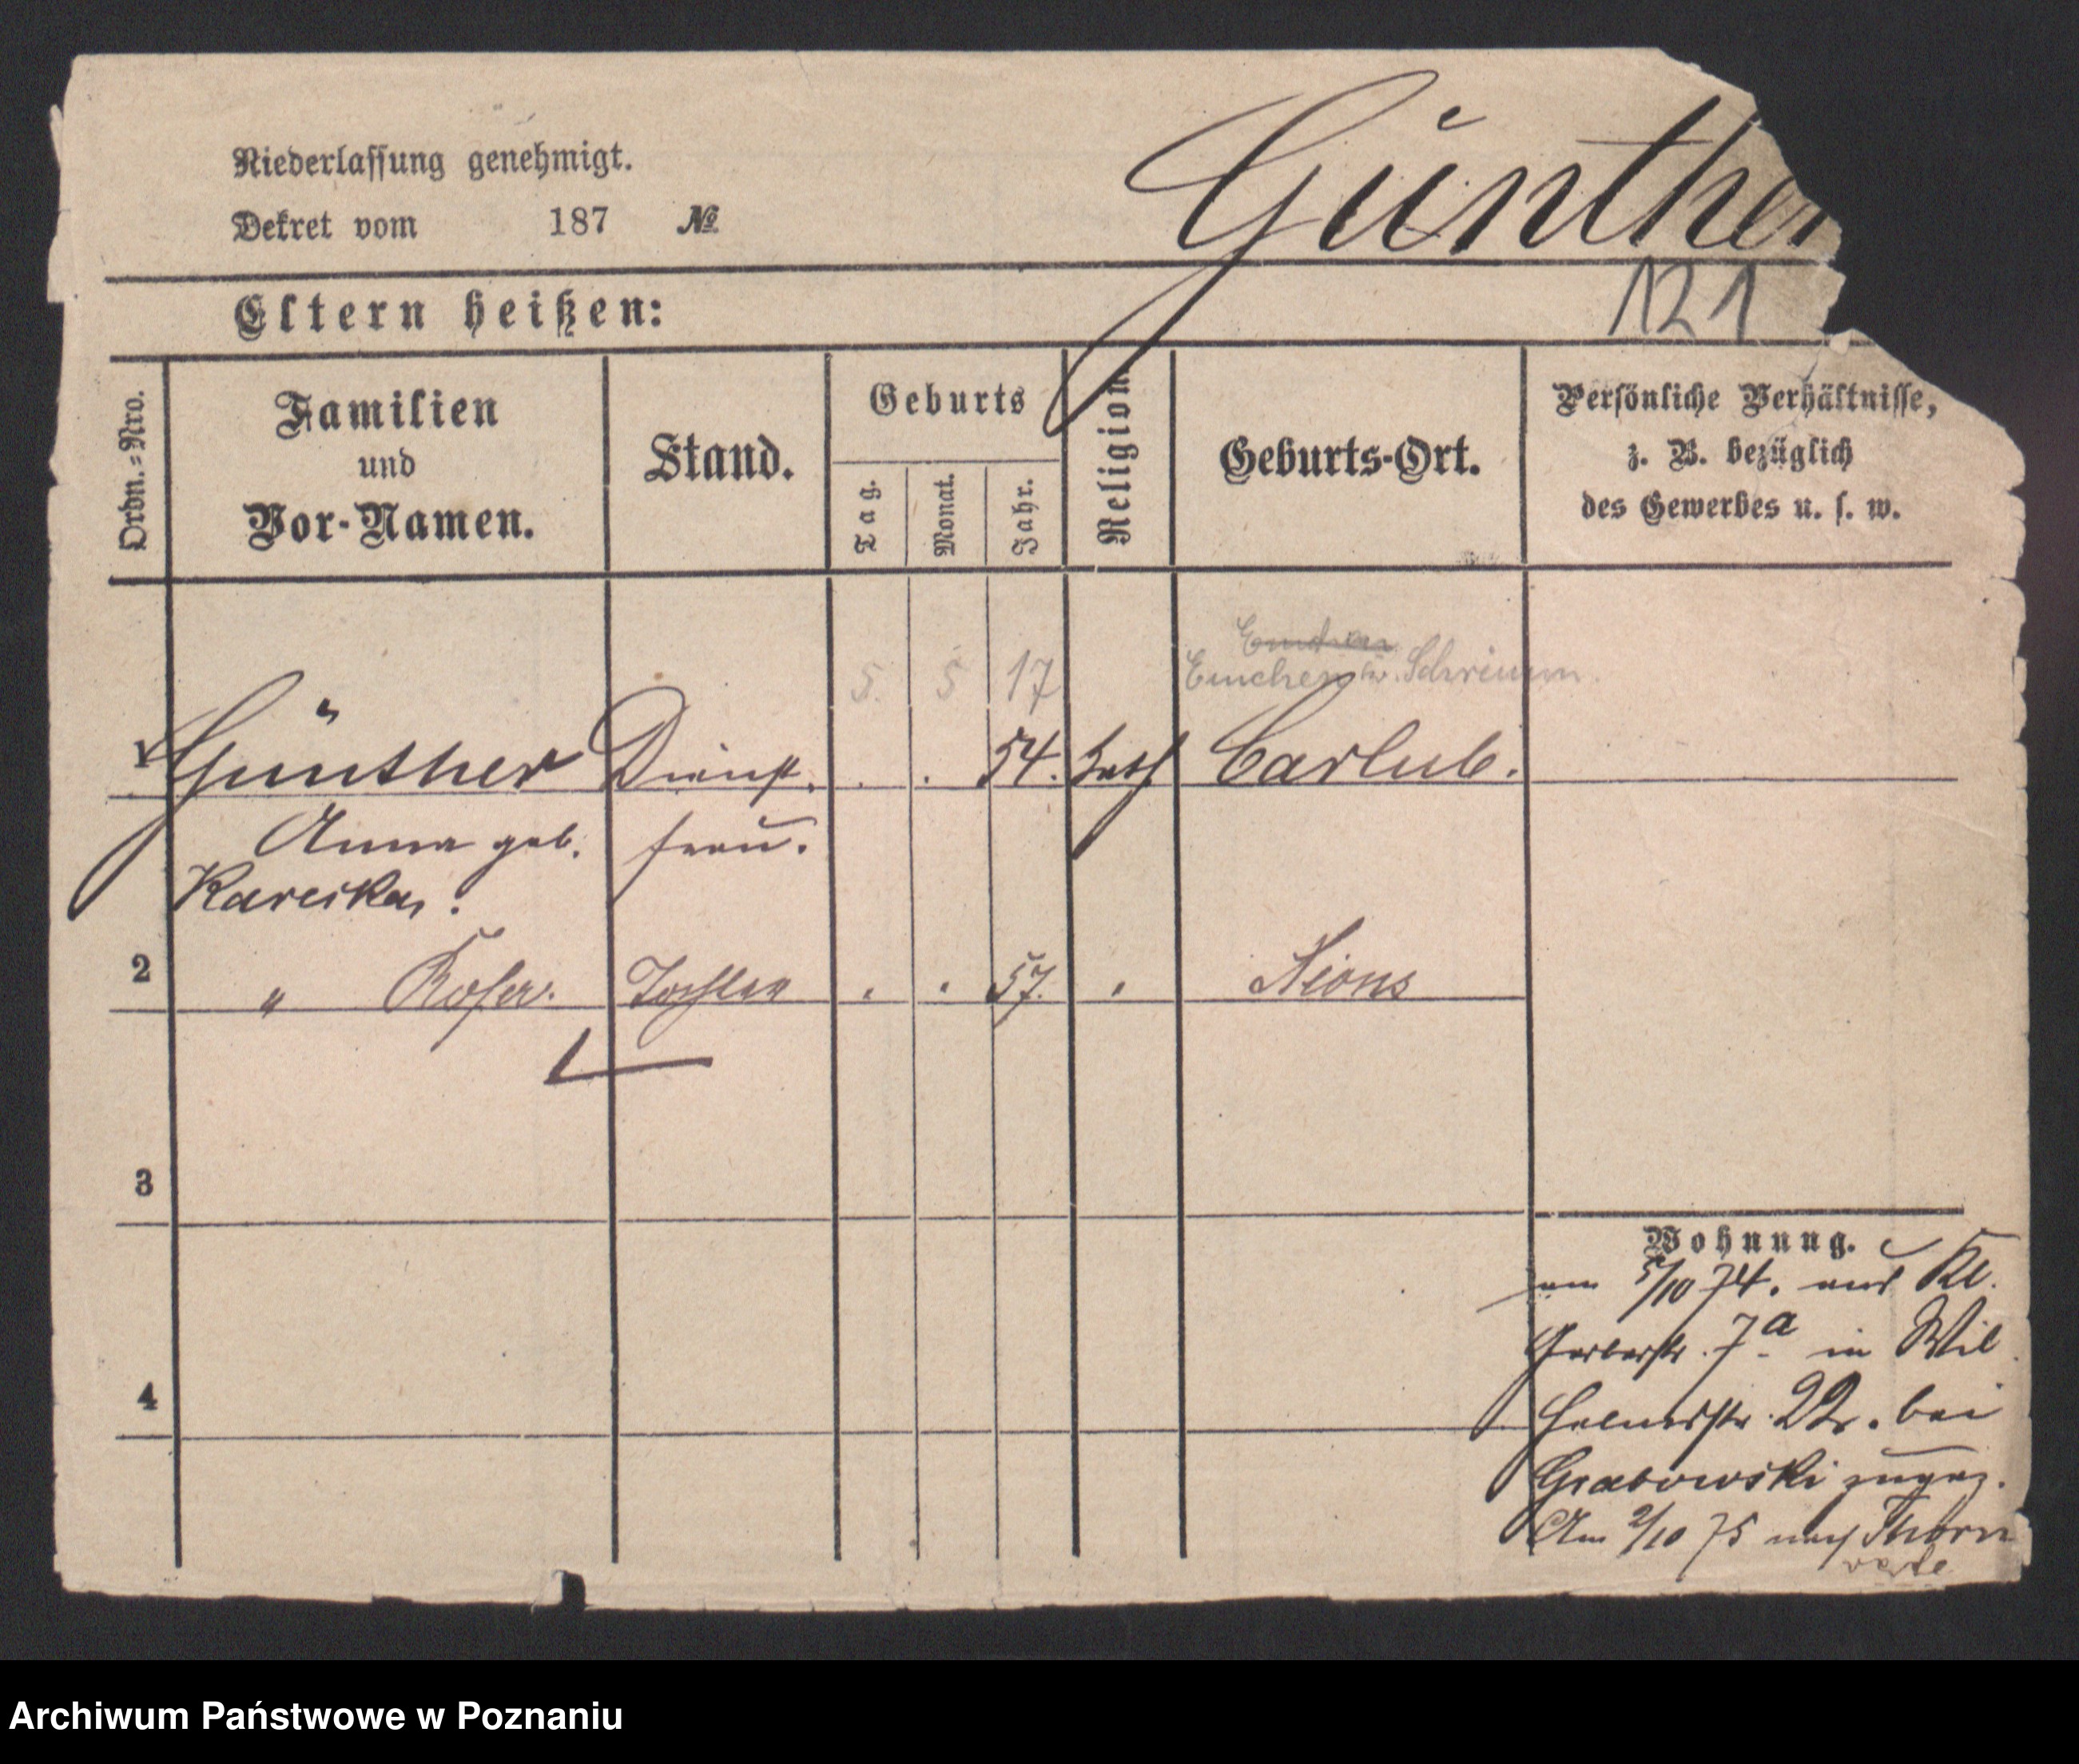 Niederlassung genehmigt.
Dekret vom 187 №
Günther
121
Eltern heißen:
Ordn.=Nro.
Familien
und
Vor-Namen.
Stand.
Geburts
Tag.
Monat.
Jahr.
Religion.
Geburts-Ort.
Persönliche Verhältnisse,
z. B. bezüglich
des Gewerbes u. s. w.
5. 5 17 Emchen Schrimm
1 Günther Dienst. 54. kath Carlub.
Anna geb. frau.
Kareska.
2 " Rosa. Tochter . . 57. . Xions
3
4
Wohnung.
am 5/10 74. aus Kl.
Gerberstr. 7a in Wil
helmstr. 22. bei
Grabowski zugez.
Am 2/10 75 nach Thorn
Archiwum Państwowe w Poznaniu